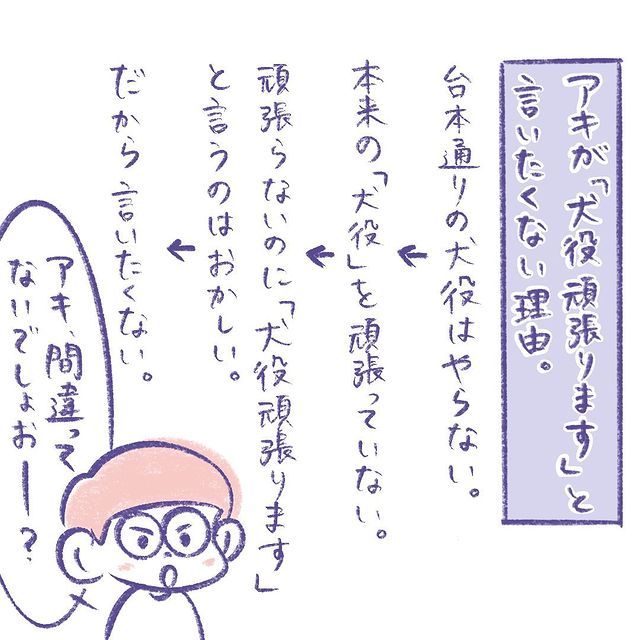 アキが「犬役頑張ります」と
言いたくない理由。
台本通りの犬役はやらない。
←
本来の「犬役」を頑張っていない。
←
頑張らないのに「犬役頑張ります」
と言うのはおかしい。
←
だから言いたくない。
アキ、間違って
ないでしょおー？